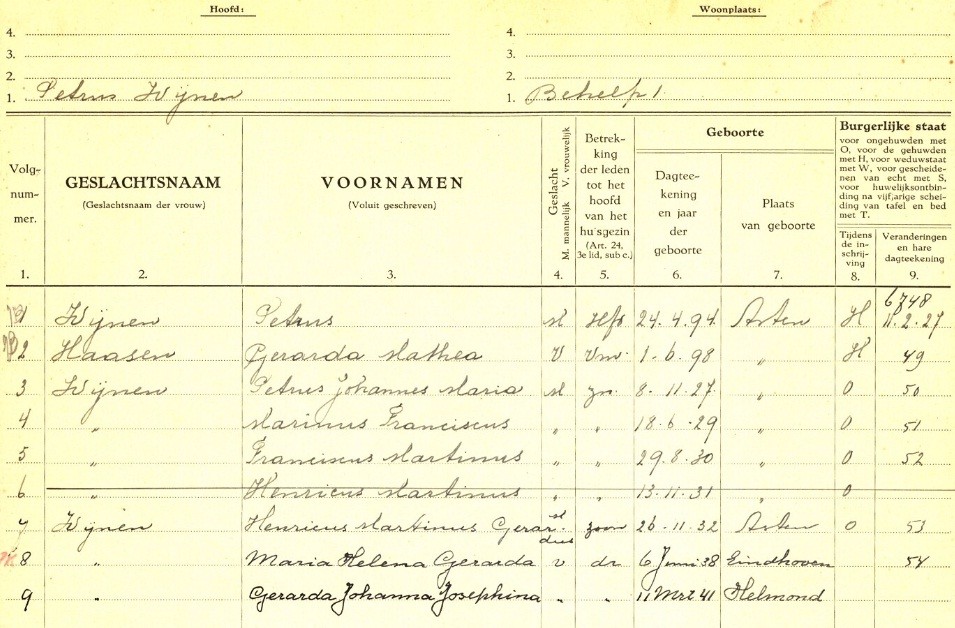 Hoofd: Woonplaats:
4. 4.
3. 3.
2. 2.
1. Petrus Wijnen 1. Behelp 1
Volg-
num-
mer.
1.
GESLACHTSNAAM
(Geslachtsnaam der vrouw)
2.
VOORNAMEN
(Voluit geschreven)
3.
Geslacht
M. mannelijk V. vrouwelijk
4.
Betrek-
king
der leden
tot het
hoofd
van het
huisgezin
(Art. 24,
3e lid, sub c.)
5.
Geboorte
Dagtee-
kening
en jaar
der
geboorte
6.
Plaats
van geboorte
7.
Burgerlijke staat
voor ongehuwden met
O, voor de gehuwden
met H, voor weduwstaat
met W, voor gescheide-
nen van echt met S,
voor huwelijksontbin-
ding na vijfjarige schei-
ding van tafel en bed
met T.
Tijdens
de in-
schrij-
ving
8.
Veranderingen
en hare
dagteekening
9.
6748
1 Wijnen Petrus M Hfd 24.4.94 Asten H 11.2.27
2 Haasen Gerarda Mathea V Vrw 1.6.98 " H 49
3 Wijnen Petrus Johannes Maria M zn. 8.11.27 " O 50
4 " Marinus Franciscus " " 18.6.29 " O 51
5 " Franciscus Martinus " " 29.8.30 " O 52
6 " Henricus Martinus " " 13.11.31 " O
7 Wijnen Henricus Martinus Gerardus M zoon 26.11.32 Asten O 53
8 " Maria Helena Gerarda v dr 6 Juni 38 Eindhoven 54
9 " Gerarda Johanna Josephina " " 11 Mrt 41 Helmond